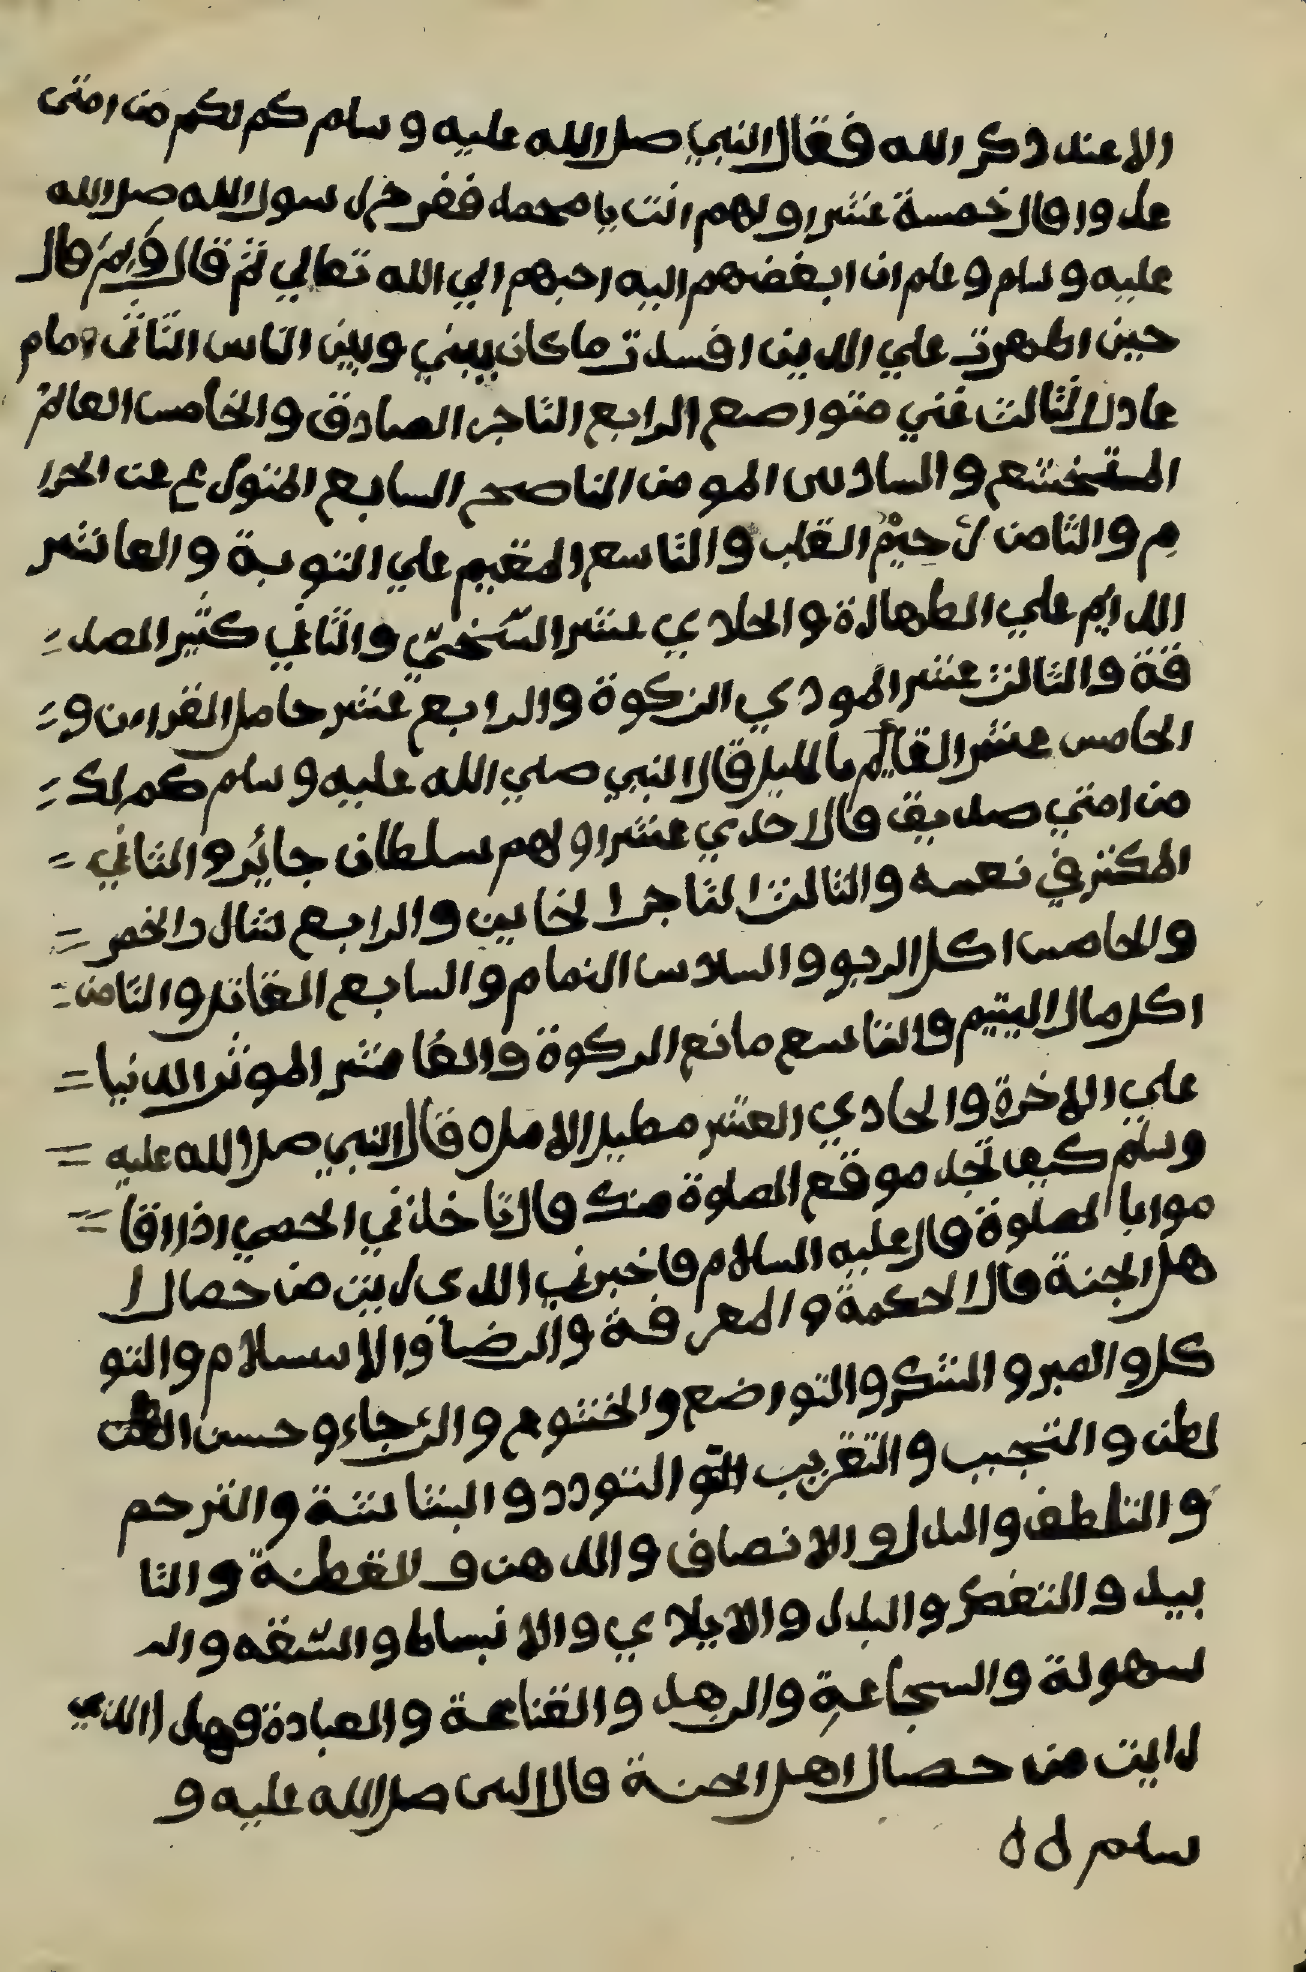 الا عند ذكر الله فقال النبي صل الله عليه وسلم كم لكم من امتى
عدو ا قال خمسة عشر اولهم انت يا محمد ففرح رسول الله صل الله
عليه وسلم وعلم ان ابغضهم اليه احبهم الي الله تعالي ثم قال ولم قال
حين اظهرت علي الدين افسدت ما كان بيني وبين الناس الثاني امام
عادل الثالث غني متواصع الرابع التاجر الصادق والخامس العالم
المتخشع والسادس المومن الناصح السابع المتورع عن الحرا
م والثامن رحيم القلب والتاسع المقيم علي التوبة والعاشر
الدايم علي الطهارة والحادي عشر السّخيّ والثاني كثير الصد =
قة والثالث عشر المودي الزكوة والرابع عشر حامل القران و =
الخامس عشر القايم بالليل قال النبي صلي الله عليه وسلم كم لك =
من امتي صديق قال احدي عشر اولهم سلطان جائر والثاني =
المكتر في نعمه والثالث التاجر الخاين والرابع شارد الخمر =
والخامس اكل الربو والسادس النمام والسابع القاتل والثامن =
اكل مال اليتيم والتاسع مانع الزكوة والعاشر الموثر الدنيا =
علي الاخرة والحادي العشر مطيل الامله قال النبي صل الله عليه =
وسلم كيف تجد موقع الصلوة منك قال تاخذني الحمي اذا قا =
موا با الصلوة قال عليه السلام فاخبرني الذي رايت من خصال ا
هل الجنة قال الحكمة والمعرفة والرضا والاسلام والتو
كل والصبر والشكر والتواضع والخشوع والرجاء وحسن
لظن والتحبب والتقريب التودد والبشاشة والترحم
والتلطف والبدل والانصاف والذهن والفطنة والتا
ييد والتفكر والبدل والايلاي والانبساط والشفه والد
سهولة والسجاعة والزهد والقناعة والعبادة فهذا الذي
رايت من خصال اهل الجنة قال النبي صل الله عليه و
سلم